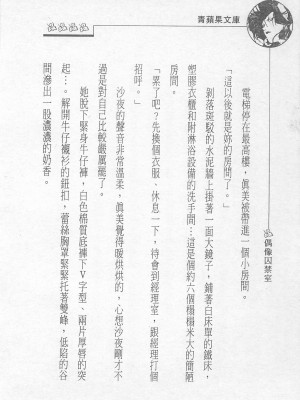 青蘋果文庫
偶像囚禁室
電梯停在最高樓，真美被帶進一個小房間。
「這以後就是妳的房間了。」
剝落斑駁的水泥牆上掛著一面大鏡子，鋪著白床單的鐵床，
塑膠衣櫃和附淋浴設備的洗手間…這是個約六個榻榻米大的簡陋
房間。
「累了吧？先換個衣服、休息一下，待會到經理室，跟經理打個
招呼。」
沙夜的聲音非常溫柔，真美覺得暖烘烘的，心想沙夜剛才不
過是對自己比較嚴厲罷了。
她脫下緊身牛仔褲，白色棉質底褲下V字型、兩片厚唇的突
起…。解開牛仔襯衫的鈕扣，蕾絲胸罩緊緊托著雙峰，低陷的谷
間滲出一股濃濃的奶香。